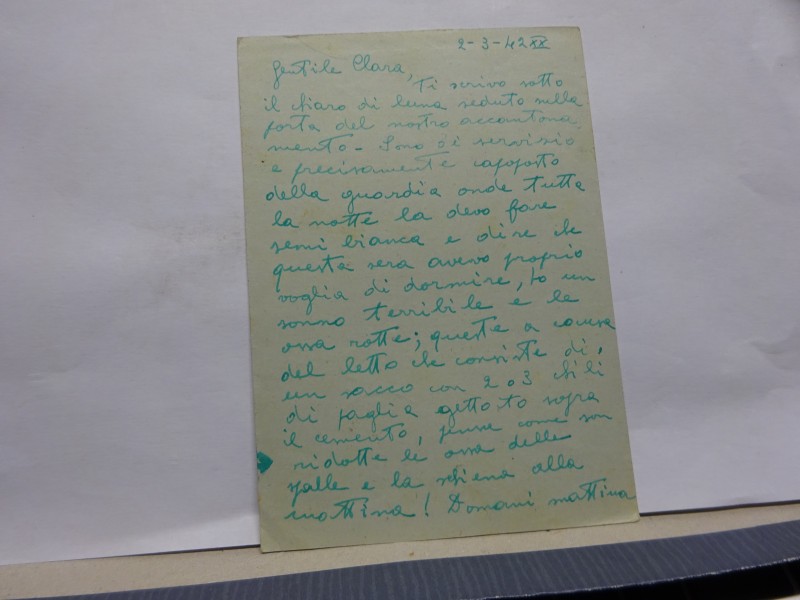 2-3-42 XX
Gentile Clara,
Ti scrivo sotto
il chiaro di luna seduto sulla
porta del nostro accantona
mento - Sono di servizio
e precisamente capoposto
della guardia onde tutta
la notte la devo fare
semi bianca e dire che
questa sera avevo proprio
voglia di dormire, ho un
sonno terribile e le
ossa rotte; queste a causa
del letto che consiste di,
un sacco con 2 o 3 chili
di paglia gettato sopra
il cemento, pensa come son
ridotte le ossa delle
spalle e la schiena alla
mattina! Domani mattina